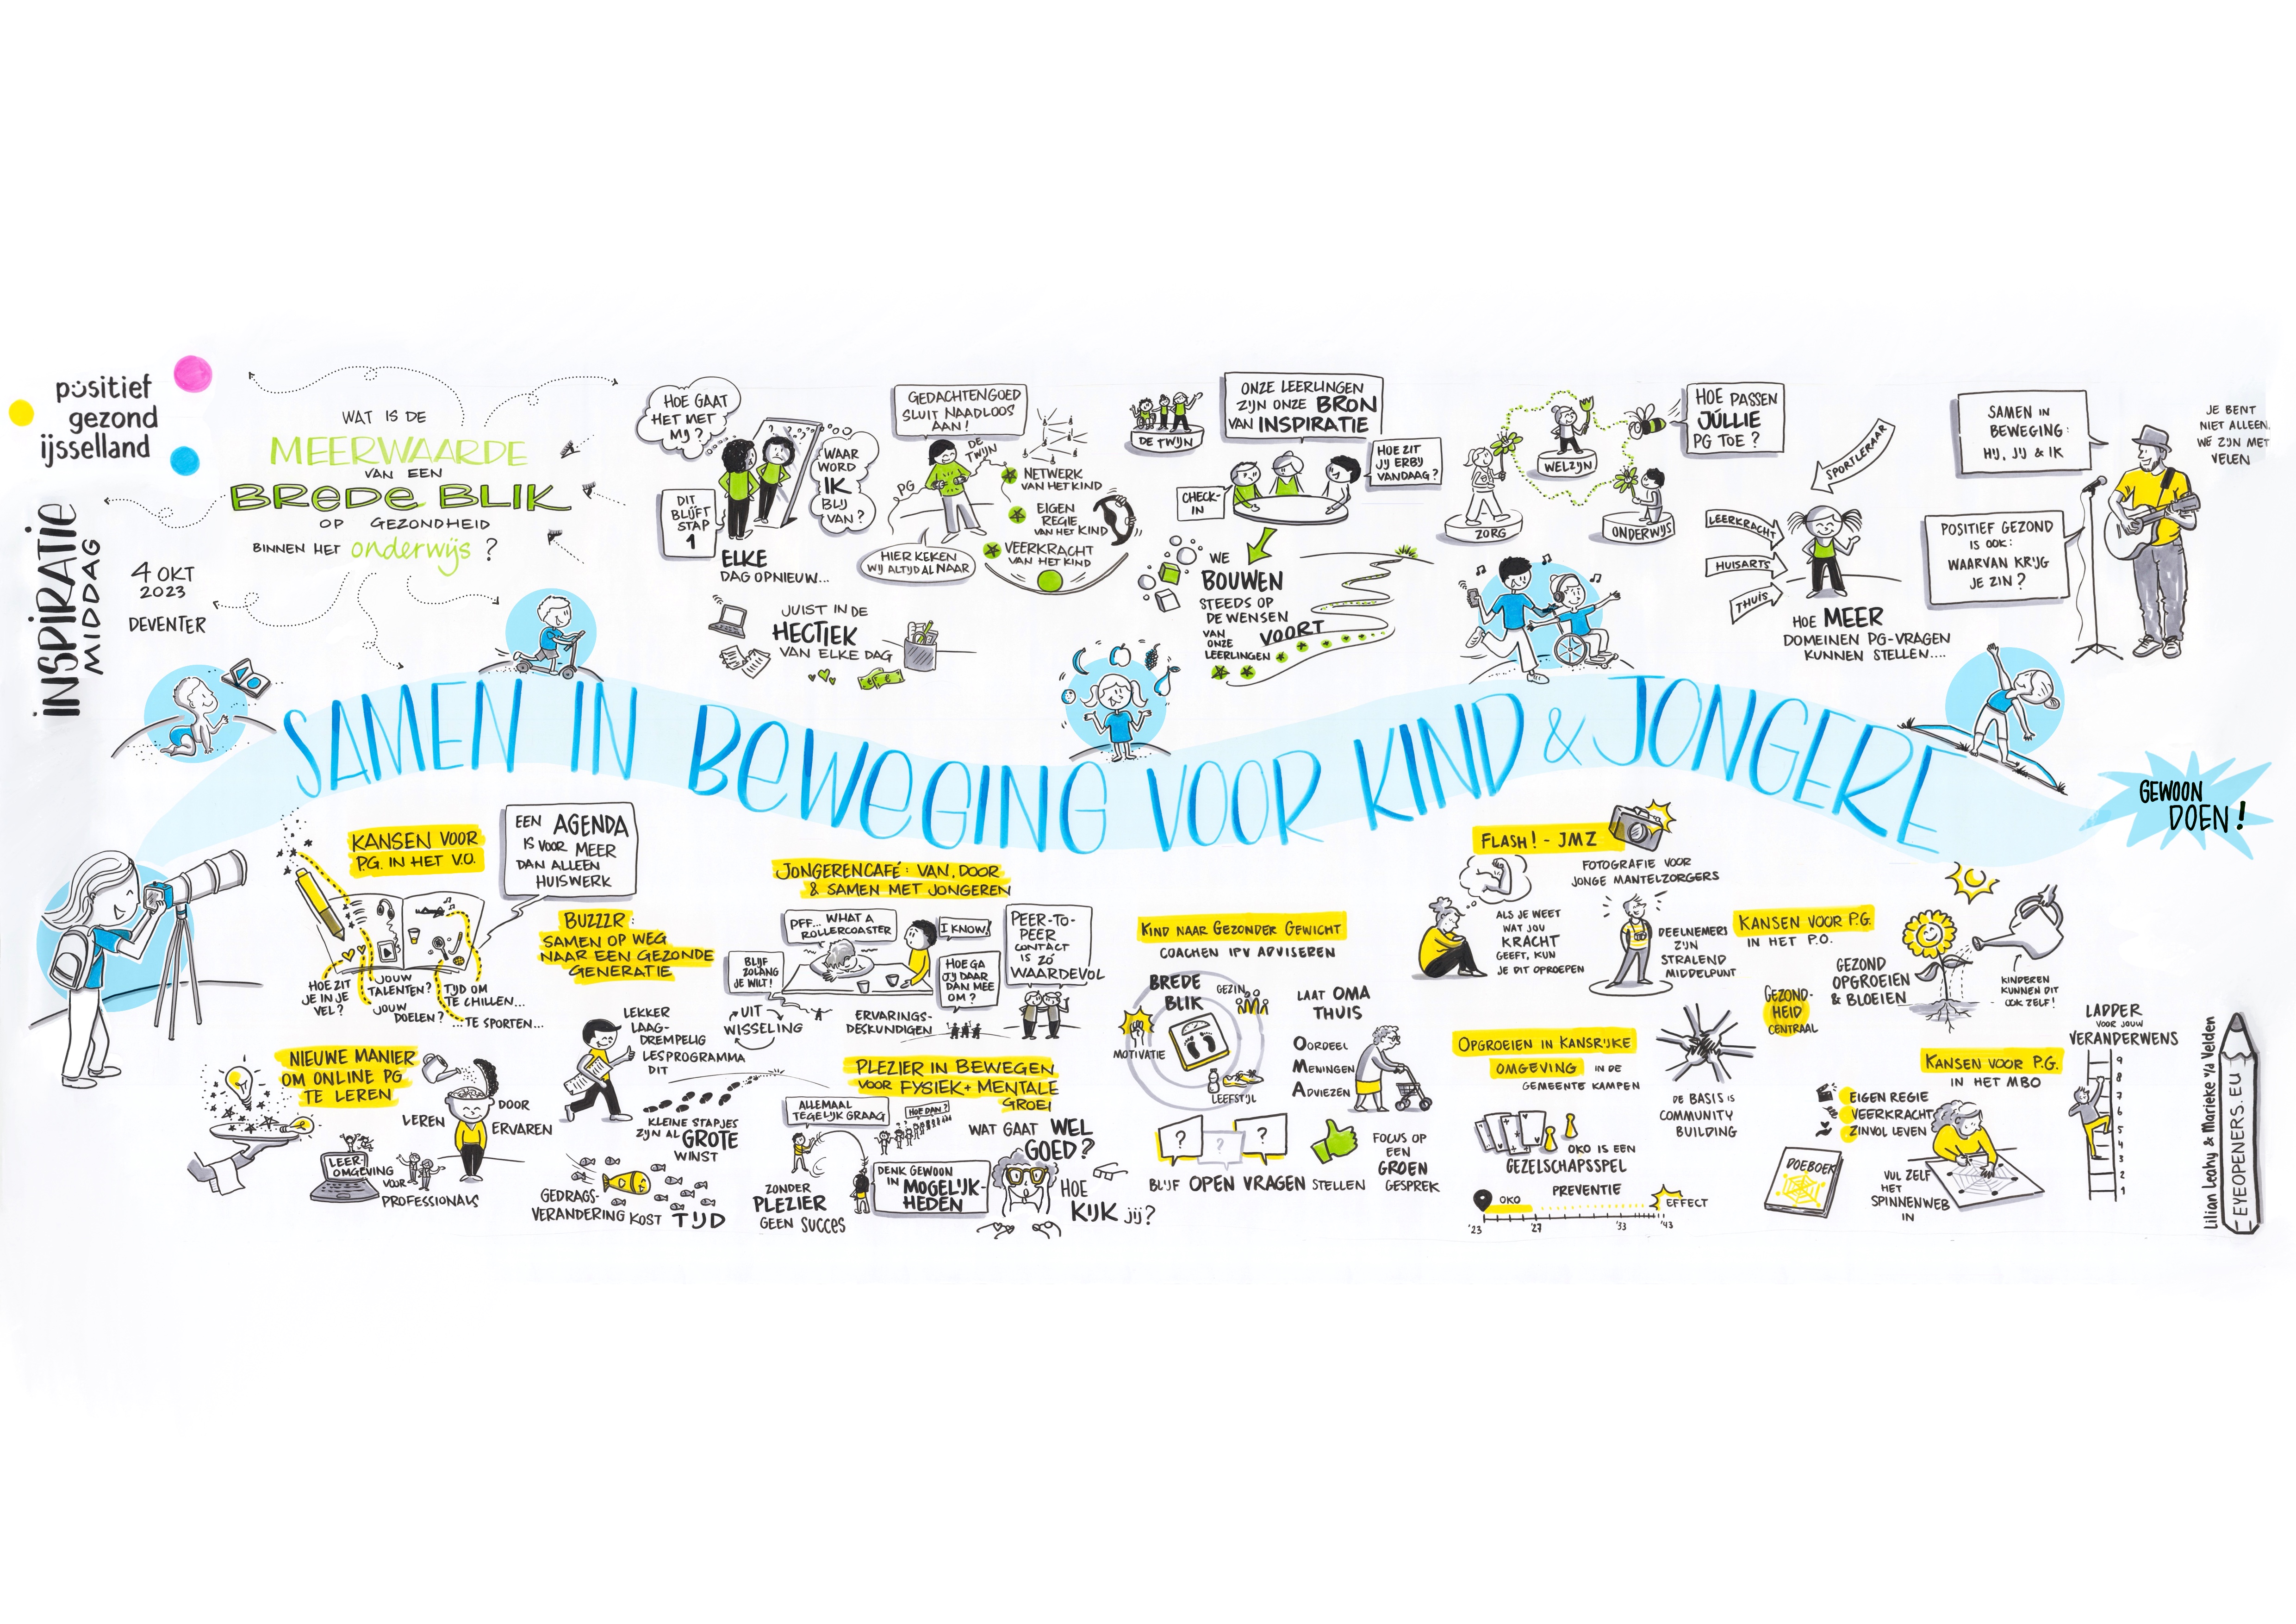 positief
gezond
ijsselland
INSPIRATIE
MIDDAG
4 OKT
2023
DEVENTER
WAT IS DE
MEERWAARDE
VAN EEN
BREDE BLIK
OP GEZONDHEID
BINNEN HET onderwijs?
HOE GAAT
HET MET
MIJ?
WAAR
WORD
IK
BLIJ
VAN?
DIT
BLIJFT
STAP
1
ELKE
DAG OPNIEUW...
JUIST IN DE
HECTIEK
VAN ELKE DAG
GEDACHTENGOED
SLUIT NAADLOOS
AAN!
DE
TWIJN
PG
HIER KEKEN
WIJ ALTIJD AL NAAR
NETWERK
VAN HET KIND
EIGEN
REGIE
VAN HET KIND
VEERKRACHT
VAN HET KIND
DE TWIJN
ONZE LEERLINGEN
ZIJN ONZE BRON
VAN INSPIRATIE
HOE ZIT
JIJ ERBIJ
VANDAAG?
CHECK-
IN
WE
BOUWEN
STEEDS OP
DE WENSEN
VAN
ONZE
LEERLINGEN
VOORT
ZORG
WELZIJN
ONDERWIJS
HOE PASSEN
JÚLLIE
PG TOE?
SPORTLERAAR
LEERKRACHT
HUISARTS
THUIS
HOE MEER
DOMEINEN PG-VRAGEN
KUNNEN STELLEN....
SAMEN IN
BEWEGING:
HIJ, JIJ & IK
POSITIEF GEZOND
IS OOK:
WAARVAN KRIJG
JE ZIN?
JE BENT
NIET ALLEEN.
WE ZIJN MET
VELEN
SAMEN IN BEWEGING VOOR KIND & JONGERE
GEWOON
DOEN!
KANSEN VOOR
P.G. IN HET V.O.
EEN AGENDA
IS VOOR MEER
DAN ALLEEN
HUISWERK
HOE ZIT
JE IN JE
VEL?
JOUW
TALENTEN?
JOUW
DOELEN?
TIJD OM
TE CHILLEN...
...TE SPORTEN...
NIEUWE MANIER
OM ONLINE PG
TE LEREN
LEREN
DOOR
ERVAREN
LEER-
OMGEVING
VOOR
PROFESSIONALS
BUZZZR:
SAMEN OP WEG
NAAR EEN GEZONDE
GENERATIE
LEKKER
LAAG-
DREMPELIG
LESPROGRAMMA
DIT
KLEINE STAPJES
ZIJN AL GROTE
WINST
GEDRAGS-
VERANDERING KOST TIJD
JONGERENCAFÉ: VAN, DOOR
& SAMEN MET JONGEREN
PFF... WHAT A
ROLLERCOASTER
I KNOW!
BLIJF
ZOLANG
JE WILT!
HOE GA
JIJ DAAR
DAN MEE
OM?
PEER-TO-
PEER
CONTACT
IS ZÓ
WAARDEVOL
UIT
WISSELING
ERVARINGS-
DESKUNDIGEN
PLEZIER IN BEWEGEN
VOOR FYSIEK + MENTALE
GROEI
ALLEMAAL
TEGELIJK GRAAG
HOE DAN?
ZONDER
PLEZIER
GEEN SUCCES
DENK GEWOON
IN MOGELIJK-
HEDEN
WAT GAAT WEL
GOED?
HOE
KIJK jij?
KIND NAAR GEZONDER GEWICHT
COACHEN IPV ADVISEREN
BREDE
BLIK
GEZIN
MOTIVATIE
LEEFSTIJL
LAAT OMA
THUIS
OORDEEL
MENINGEN
ADVIEZEN
? ? ?
BLIJF OPEN VRAGEN STELLEN
FOCUS OP
EEN
GROEN
GESPREK
FLASH! - JMZ
FOTOGRAFIE VOOR
JONGE MANTELZORGERS
ALS JE WEET
WAT JOU
KRACHT
GEEFT, KUN
JE DIT OPROEPEN
DEELNEMERS
ZIJN
STRALEND
MIDDELPUNT
OPGROEIEN IN KANSRIJKE
OMGEVING IN DE
GEMEENTE KAMPEN
DE BASIS IS
COMMUNITY
BUILDING
OKO IS EEN
GEZELSCHAPSSPEL
PREVENTIE
OKO
EFFECT
'23 '27 '33 '43
KANSEN VOOR P.G.
IN HET P.O.
GEZOND
OPGROEIEN
& BLOEIEN
GEZOND-
HEID
CENTRAAL
KINDEREN
KUNNEN DIT
OOK ZELF!
KANSEN VOOR P.G.
IN HET MBO
EIGEN REGIE
VEERKRACHT
ZINVOL LEVEN
DOEBOEK
VUL ZELF
HET
SPINNENWEB
IN
LADDER
VOOR JOUW
VERANDERWENS
9
8
7
6
5
4
3
2
1
Lilian Leahy & Marieke v/d Velden
EYEOPENERS.EU